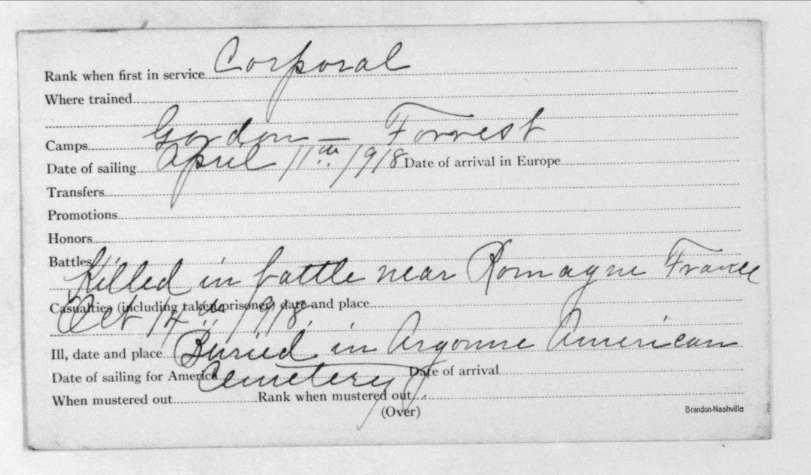 Rank when first in service Corporal
Where trained
Camps Gordon — Forrest
Date of sailing April 11th 1918 Date of arrival in Europe
Transfers
Promotions
Honors
Battles
Killed in battle near Romagne France
Casualties (including taken prisoner) date and place
Oct 14th 1918.
Ill, date and place Buried in Argonne American
Date of sailing for America Cemetery Date of arrival
When mustered out Rank when mustered out
(Over)
Brandon-Nashville